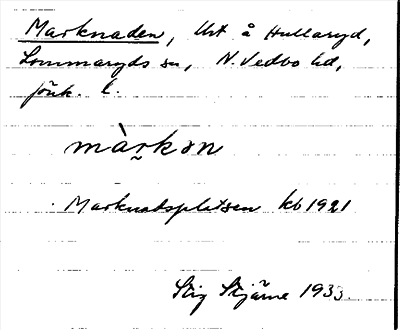 Marknaden, Urt å Hullaryd,
Lommaryds sn, N. Vedbo hd,
Jönk. l.
màrkən
Marknadsplatsen kb 1921
Stig Stjärne 1933.